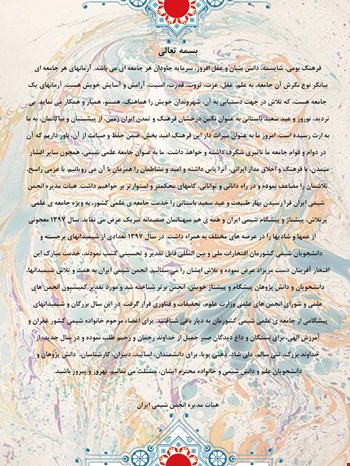 بسمه تعالی
فرهنگ بومی، شایسته، دانش بنیان و عقل افروز، سرمایه جاودان هر جامعه ای می باشد. آرمانهای هر جامعه ای
بیانگر نوع نگرش آن جامعه، به علم، عقل، عزت، ثروت، قدرت، امنیت، آرامش و آسایش خویش هست. آرمانهای یک
جامعه هست، که تلاش در جهت دستیابی به آن، شهروندان خویش را هماهنگ، همسو، همیار و همکار می نماید. بی
تردید، نوروز و عید سعید باستانی به عنوان نگین درخشان فرهنگ و تمدن ایران زمین، از پیشینیان و نیاکانمان، به ما
به ارث رسیده است. امروز ما به عنوان میراث دار این فرهنگ امید بخش، ضمن حفظ و صیانت از آن، باور داریم که آن
در دوام و قوام جامعه ما تاثیری شگرف داشته و خواهد داشت. ما به عنوان جامعه علمی شیمی، همچون سایر اقشار
متمدن، با فرهنگ و اخلاق مدار ایرانی، آنرا پاس داشته و امید و نشاطمان را همزمان با آن می رویانیم. با عزمی راسخ،
تلاشمان را مضاعف نموده و در راه دانائی و توانائی، گامهای محکمتر و استوارتر بر خواهیم داشت. هیات مدیره انجمن
شیمی ایران فرا رسیدن بهار طبیعت و عید سعید باستانی را خدمت جامعه ی علمی کشور، به ویژه جامعه ی علمی
پرتلاش، پیشتاز و پیشگام شیمی ایران و همه ی هم میهنانمان صمیمانه تبریک عرض می نماید. سال ۱۳۹۷ معجونی
از غمها و شادیها را در عرصه های مختلف به همراه داشت. در سال ۱۳۹۷ تعدادی از شیمیدانهای برجسته و
دانشجویان شیمی کشورمان افتخارات ملی و بین المللی قابل تقدیر و تحسینی کسب نمودند. خدمت مبارک این
افتخار آفرینان دست مریزاد عرض نموده و تلاش ایشان را می ستائیم. انجمن شیمی ایران به همت و تلاش شیمیدانها،
دانشجویان و دانش پژوهان پیشگام و پیشتاز خویش، انجمن برتر شناخته شد و مورد تقدیر کمیسیون انجمن های
علمی و شورای انجمن های علمی وزارت علوم، تحقیقات و فناوری قرار گرفت. در این سال بزرگان و شیمیدانهای
پیشگامی از جامعه ی علمی شیمی کشورمان به دیار باقی شتافتند. برای اعضاء مرحوم خانواده شیمی کشور غفران و
آمرزش الهی، برای بستگان و داغ دیدگان صبر جمیل از خداوند رحمان و رحیم طلب نموده و در سال جدید، از
خداوند بزرگ، تنی سالم، دلی شاد، ذهنی پویا، برای دانشمندان، اساتید، دبیران، کارشناسان، دانش پژوهان و
دانشجویان علم و دانش شیمی و خانواده محترم ایشان، مسئلت می نمائیم. بهروز و پیروز باشید.
هیات مدیره انجمن شیمی ایران